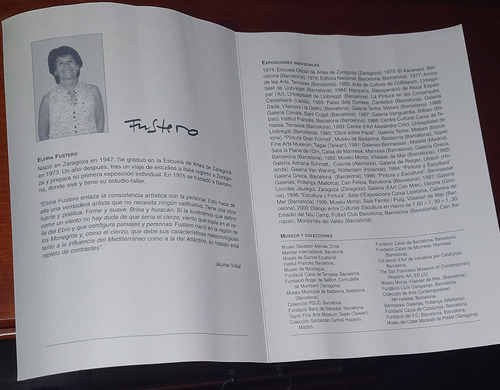 Fustero
ELVIRA FUSTERO
Nació en Zaragoza en 1947. Se graduó en la Escuela de Artes de Zaragoza
en 1973. Un año después, tras un viaje de estudios a Italia regresó a Zarago-
za y preparó su primera exposición individual. En 1975 se trasladó a Barcelo-
na, donde vive y tiene su estudio-taller.
"Elvira Fustero enlaza la consistencia artística con la personal. Esto hace de
ella una verdadera artista que no necesita ningún calificativo. Tiene una obra
fuerte y poética. Firme y suave. Brisa y huracán. Si la tuviéramos que definir
como un viento no hay duda de que sería el cierzo, viento que aspira en el va-
lle del Ebro y que configura paisajes y personas. Fustero nació en la región de
los Monegros y, como el cierzo, que debe sus características meteorológicas
tanto a la influencia del Mediterráneo como a la del Atlántico, su trabajo está
repleto de contrastes"
Jaume Vidal
EXPOSICIONES INDIVIDUALES
1974: Escuela Oficial de Artes de Zaragoza (Zaragoza). 1975: El Ascensor, Bar-
celona (Barcelona). 1976: Editora Nacional, Barcelona (Barcelona). 1977: Amics
de les Arts, Terrassa (Barcelona). 1982: Aula de Cultura de Collblanch, L'Hospi-
talet de Llobregat (Barcelona). 1984: Recuperació de Nous Espais
per l'Art, L'Hospitalet de Llobregat (Barcelona). La Pintura en les Comarques,
Castellterçol (Lleida). 1985: Palau dels Comtes, Centelles (Barcelona). Galeria
Dadá, Vilanova i la Geltrú (Barcelona). Galeria Terré, Mataró (Barcelona). 1986:
Galeria Canals, Sant Cugat (Barcelona). 1987: Galeria Vanguardia, Bilbao (Viz-
caya). Institut Francés, Barcelona (Barcelona). 1988: Centre Cultural Caixa de Te-
rrassa, Terrassa (Barcelona). 1989: Centre d'Art Alexandre Cirici, L'Hospitalet de
Llobregat (Barcelona). 1990: "Obra sobre Papel", Galeria Terré, Mataró (Barcelo-
na). "Evolución del Gesto", Museu de Badalona, Badalona (Barcelona). Taipei
Fine Arts Museum, Taipei (Taiwan). 1991: Galeria Bennassar, Madrid (Madrid).
Sala la Plana de l'Om, Caixa de Manresa, Manresa (Barcelona). Galeria Greca,
Barcelona (Barcelona). 1992: Museu Monjo, Vilassar de Mar (Barcelona). 1993:
Galeria Adriana Schmidt, Colonia (Alemania). Galeria de Reiger, Utrech (Ho-
landa). Galeria Van Waning, Rotterdam (Holanda). 1994: "Pintura y Escultura",
Galeria Greca, Barcelona (Barcelona). 1996: "Pintura y Escultura", Bennassar
Galeries, Pollença (Mallorca). Can Felipa, Barcelona (Barcelona). 1997: Galeria
Mar (Barcelona). 1999: Museu Monjo, Sala Feries i Puig, Vilassar de Mar (Bar-
celona). 2000: Diálogo entre Culturas: Escultura en hierro de 1,60 × 1,30 × 1,30.
Estadio del Nou Camp, Futbol Club Barcelona, Barcelona (Barcelona).
MUSEOS Y COLECCIONES
Museo Salvador Allende, Chile.
Marzoar Internacional, Barcelona.
Museo de Guinea Ecuatorial.
Institut Francés, Barcelona.
Museo de Nicaragua.
Fundació Caixa de Terrassa, Barcelona.
Fundació Roger de Belfort, Comuñeda
de Montsant (Tarragona).
Museo Municipal de Badalona, Badalona
(Barcelona).
Colección PSUC, Barcelona.
Fundació Banc de Sabadell, Barcelona.
Taipei Fine Arts Museum, Taipei (Taiwan).
Colección Santander Central Hispano,
Madrid.
Fundació Caixa de Barcelona, Barcelona.
Fundació Caixa de Manresa, Manresa
(Barcelona).
Col·lecció d'Art de Iniciativa per Catalunya
Barcelona.
The San Francisco Museum of Contemporary
Hispanic Art, EE.UU.
Museu Monjo, Vilassar de Mar, (Barcelona).
Fundació Lluis Companys, Barcelona.
Colección de Arte Contemporáneo
NH Hoteles, Barcelona.
Bennassar Galeries, Pollença (Mallorca).
Fundació Caixa de Catalunya, Barcelona.
Fundació del F.C. Barcelona, Barcelona.